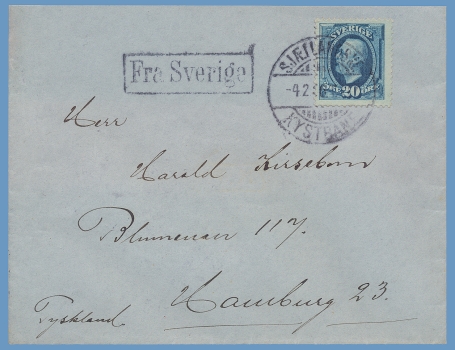 Fra Sverige
SVERIGE
20
ÖRE
SJÆLLANDSKE
-4.2.
KYSTBANE
Herr
Harald Kirsebom
Blumenau 117.
Hamburg 23.
Tyskland.